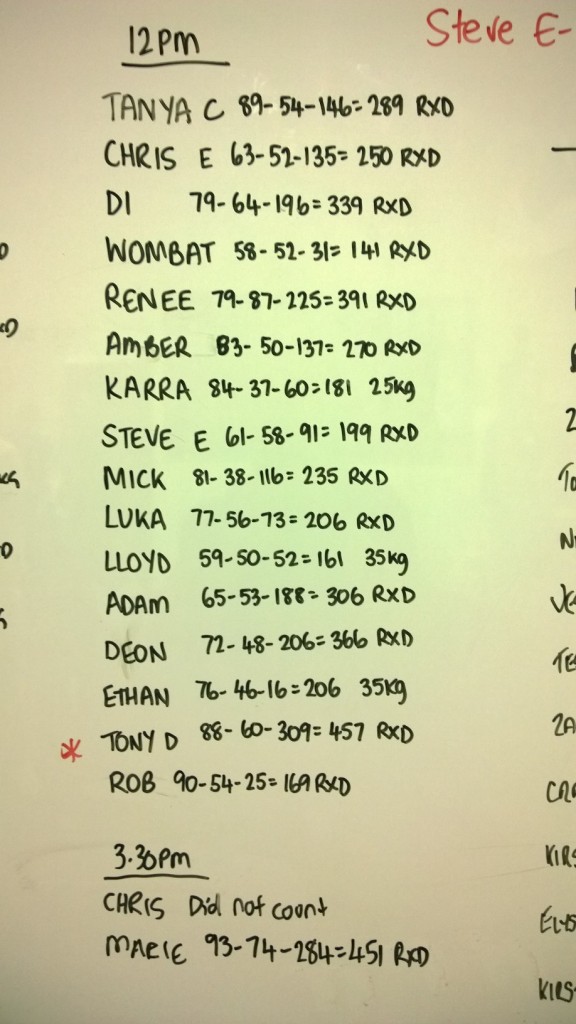 Steve E-
12pm
TANYA C 89-54-146=289 RXD
CHRIS E 63-52-135=250 RXD
DI 79-64-196=339 RXD
WOMBAT 58-52-31=141 RXD
RENEE 79-87-225=391 RXD
AMBER 83-50-137=270 RXD
KARRA 84-37-60=181 25kg
STEVE E 61-58-91=199 RXD
MICK 81-38-116=235 RXD
LUKA 77-56-73=206 RXD
LLOYD 59-50-52=161 35kg
ADAM 65-53-188=306 RXD
DEON 72-48-206=366 RXD
ETHAN 76-46-16=206 35kg
* TONY D 88-60-309=457 RXD
ROB 90-54-25=169 RXD
3.30pm
CHRIS Did not count
MARIE 93-74-284=451 RXD